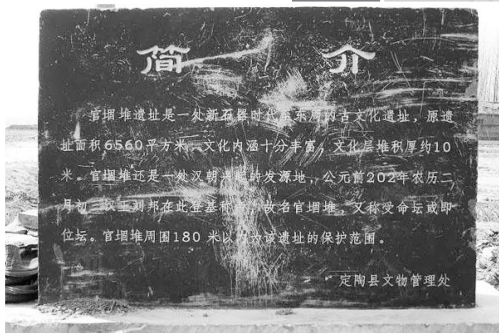 简 介
官堌堆遗址是一处新石器时代至东周的古文化遗址，原遗
址面积6560平方米，文化内涵十分丰富，文化层堆积厚约10
米。官堌堆还是一处汉朝 的发源地，公元前202年农历二
月初 刘邦在此登基称 故名官堌堆，又称受命坛或即
位坛。官堌堆周围180 米以内为该遗址的保护范围。
定陶县文物管理处